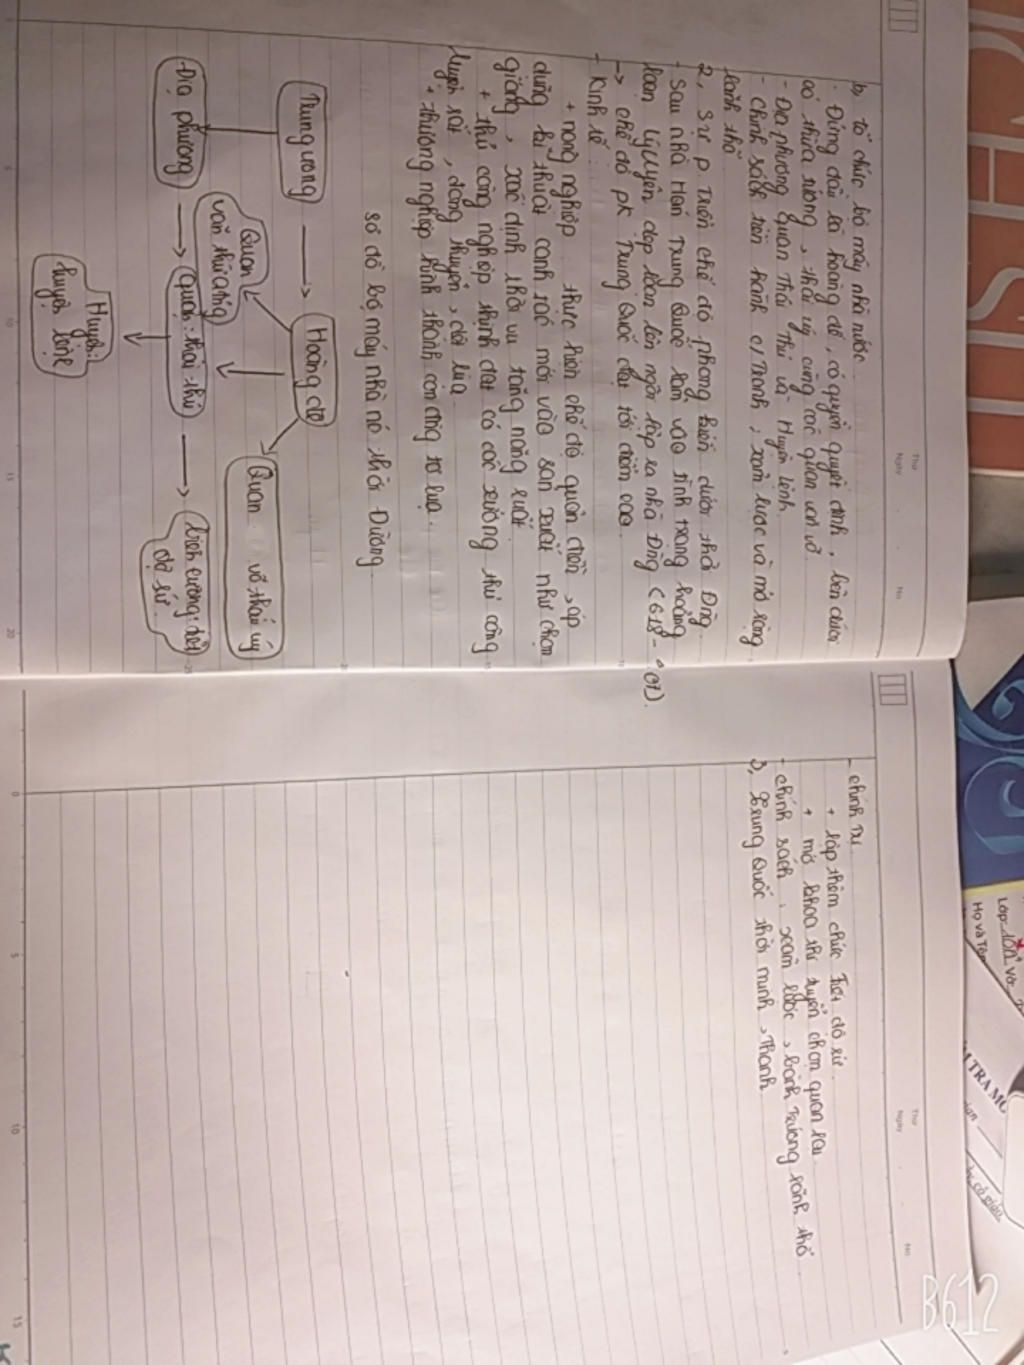 b, tổ chức bộ máy nhà nước
- Đứng đầu là hoàng đế, có quyền quyết định, bên dưới
có thừa tướng, thái úy cùng các quan văn võ.
- Địa phương: quan Thái Thú và Huyện lệnh
- chính sách tiến hành c/tranh, xâm lược và mở rộng
lãnh thổ
2, Sự p triển chế độ phong kiến dưới thời Đng
- Sau nhà Hán Trung Quốc lâm vào tình trạng hoảng
loạn, Lý Uyên dẹp loạn lên ngôi lập ra nhà Đng (618-907).
-> chế độ pk Trung Quốc đạt tới đỉnh cao.
- Kinh tế:
+ nông nghiệp: thực hiện chế độ quân điền, áp
dụng kĩ thuật canh tác mới vào sản xuất như chọn
giống, xác định thời vụ tăng năng suất.
+ thủ công nghiệp thịnh đạt có các xưởng thủ công
luyện sắt, đóng thuyền, dệt lụa
+ thương nghiệp hình thành con đng tơ lụa.
sơ đồ bộ máy nhà nc thời Đường.
Trung ương
Hoàng đế
Quan văn thừa tg
Quan võ thái úy
- Địa phương
quận: thái thú
biên cương: tiết độ sứ
Huyện: huyện lệnh
- chính trị
+ lập thêm chức Tiết độ sứ
+ mở khoa thi tuyển chọn quan lại
- chính sách: xâm lược, bành trướng lãnh thổ
3, Trung Quốc thời minh, Thanh
Thứ
Ngày
No
Thứ
Ngày
No
Lớp:
Họ và Tên
TRA
cô giáo
5
10
15
20
0
5
10
15
B612